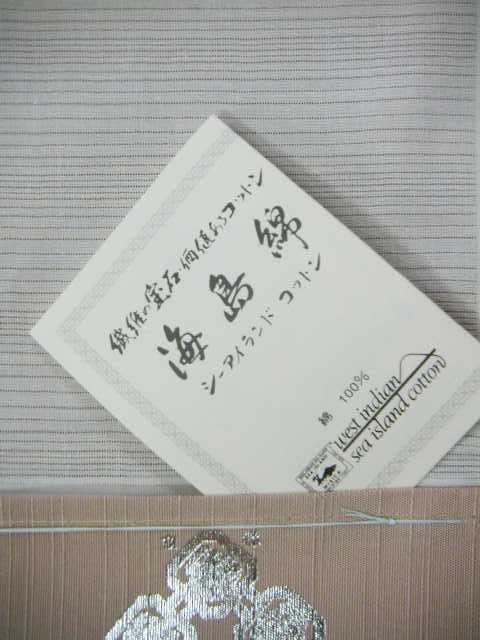 繊維の宝石・価値あるコットン
海島綿
シーアイランド コットン
綿 100%
west indian
sea island cotton